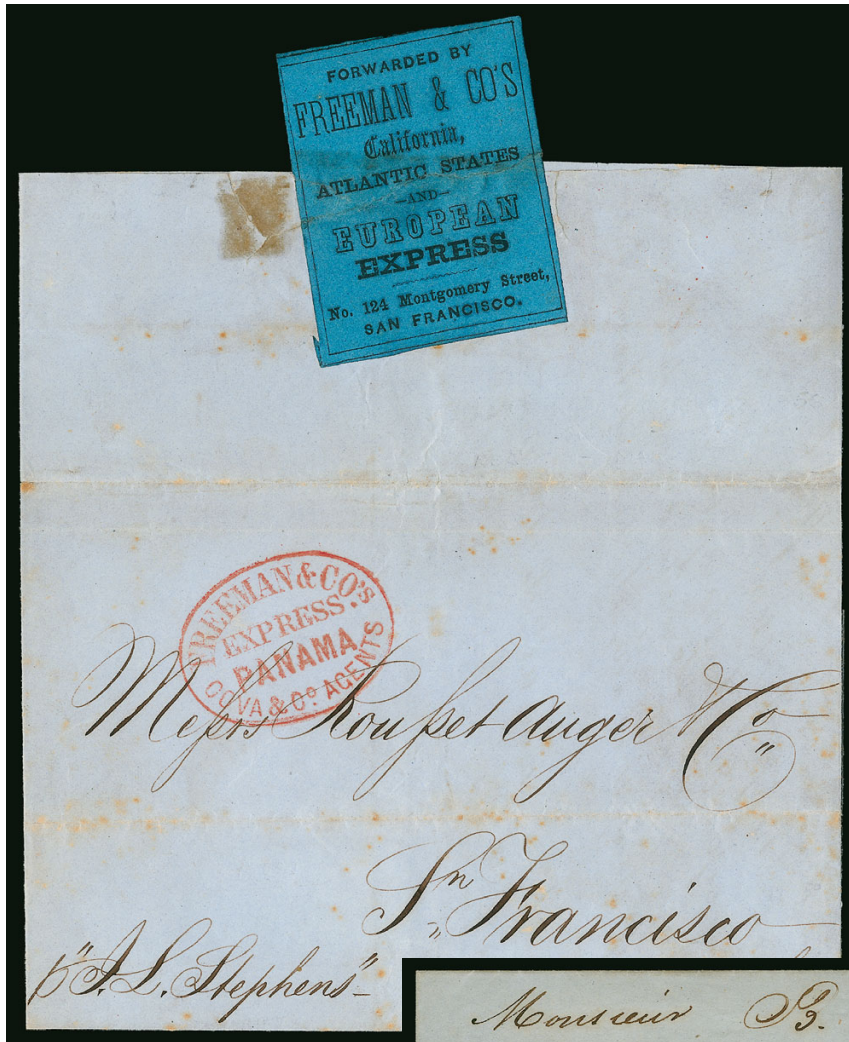 FORWARDED BY
FREEMAN & CO'S
California,
ATLANTIC STATES
—AND—
EUROPEAN
EXPRESS
No. 124 Montgomery Street,
SAN FRANCISCO.
FREEMAN & CO'S
EXPRESS.
PANAMA
& Co AGENTS
Messrs Rousset Auger & Co
Sn Francisco
p "J. L. Stephens"
Monsieur B.